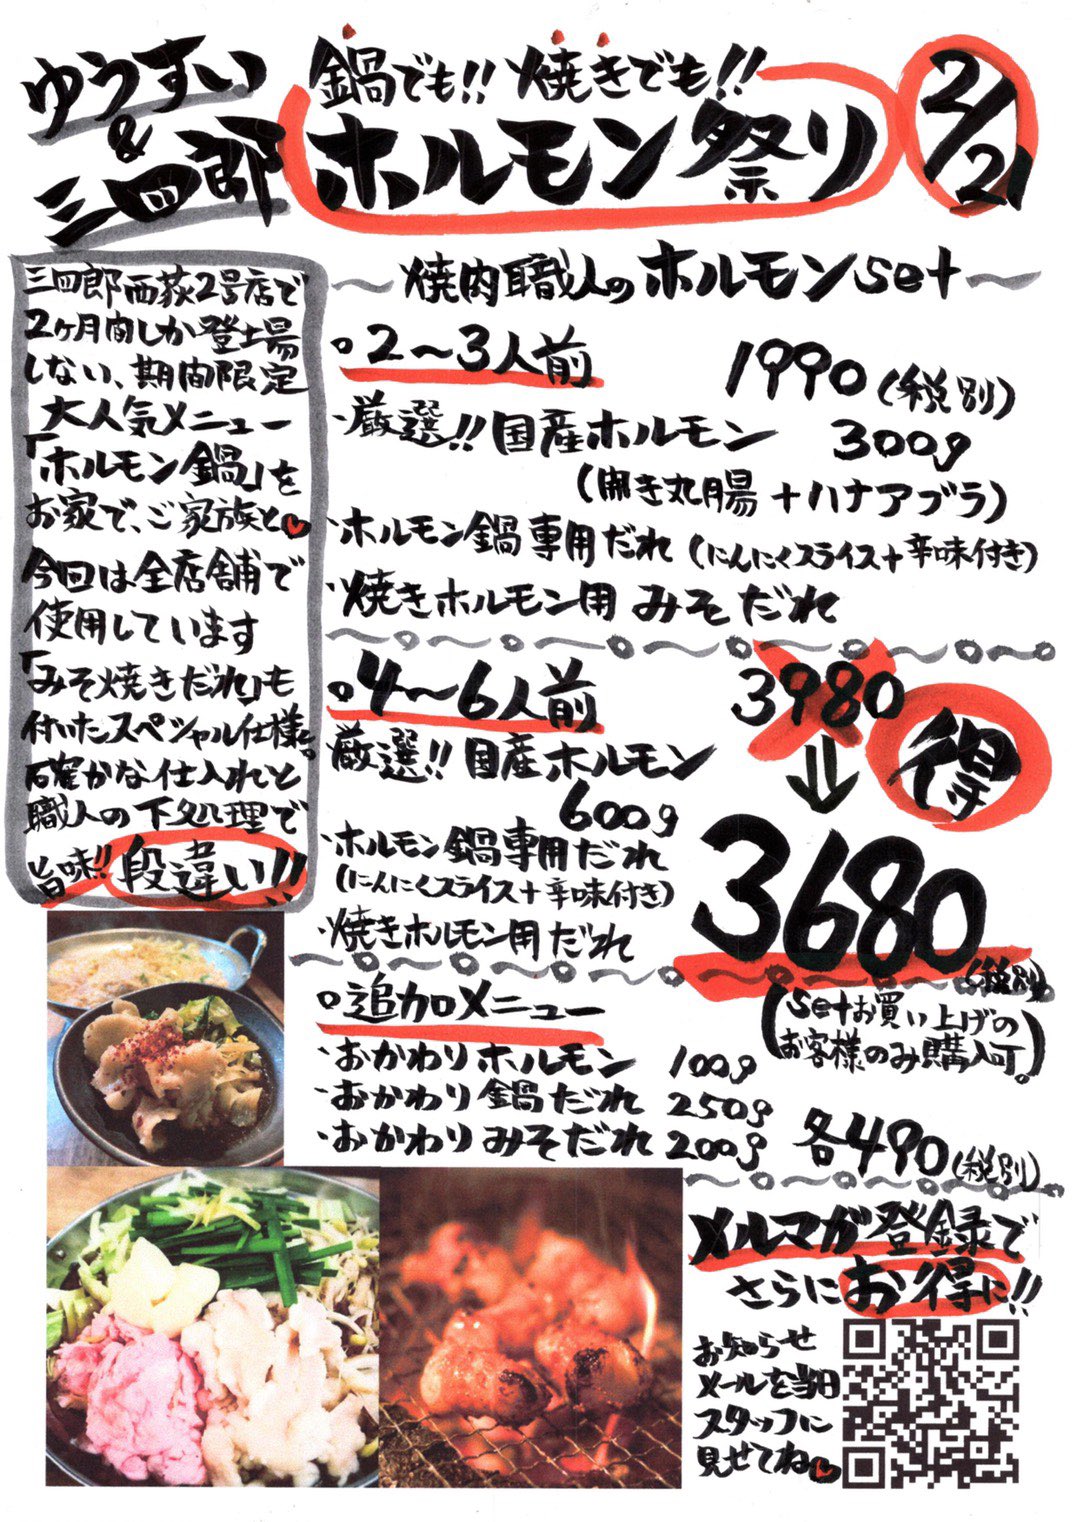 ゆうすい
&
三四郎
鍋でも!! 焼きでも!!
ホルモン祭り
2/21
三四郎西荻2号店で
2ヶ月間しか登場
しない、期間限定
大人気メニュー
「ホルモン鍋」を
お家で、ご家族と
今回は全店舗で
使用しています
「みそ焼きだれ」も
付いたスペシャル仕様。
確かな仕入れと
職人の下処理で
旨味!! 段違い!!
〜焼肉職人のホルモンset〜
○2〜3人前 1990(税別)
・厳選!! 国産ホルモン 300g
(開き丸腸+ハナアブラ)
・ホルモン鍋専用だれ(にんにくスライス+辛味付き)
・焼きホルモン用 みそだれ
○4〜6人前
3980
↓
得
3680
(税別)
厳選!! 国産ホルモン
600g
・ホルモン鍋専用だれ
(にんにくスライス+辛味付き)
・焼きホルモン用だれ
○追加メニュー
(setお買い上げの
お客様のみ購入可。)
・おかわりホルモン 100g
・おかわり鍋だれ 250g
・おかわりみそだれ 200g
各490(税別)
メルマガ登録で
さらにお得に!!
お知らせ
メールを当日
スタッフに
見せてね